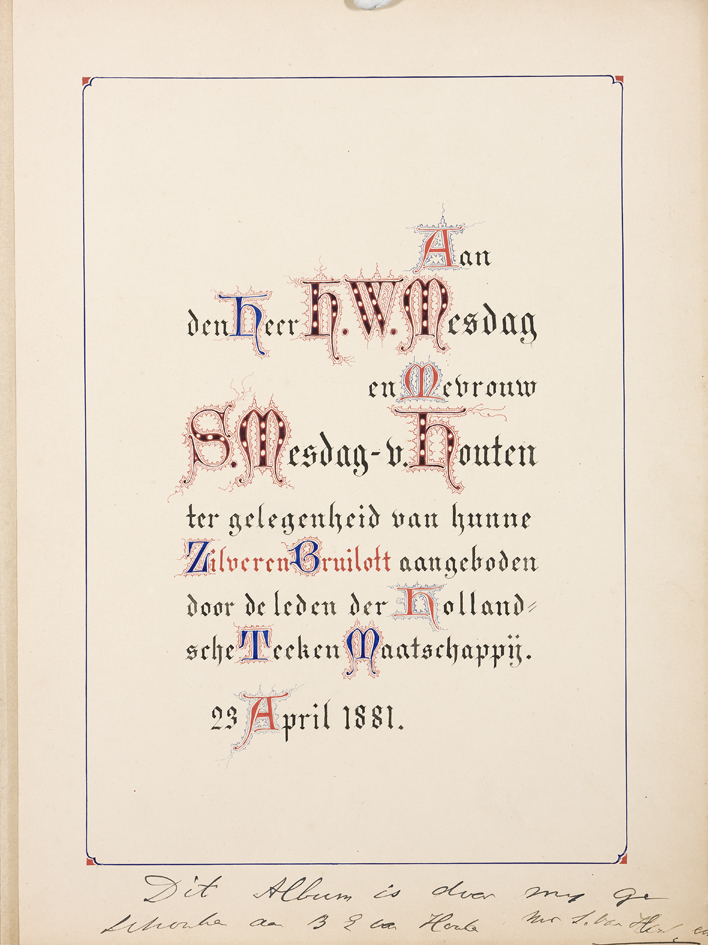 Aan
den Heer H. W. Mesdag
en Mevrouw
S. Mesdag - v. Houten
ter gelegenheid van hunne
Zilveren Bruilott aangeboden
door de leden der Holland=
sche Teeken Maatschappij.
23 April 1881.
Dit Album is door my ge
schonke aa B